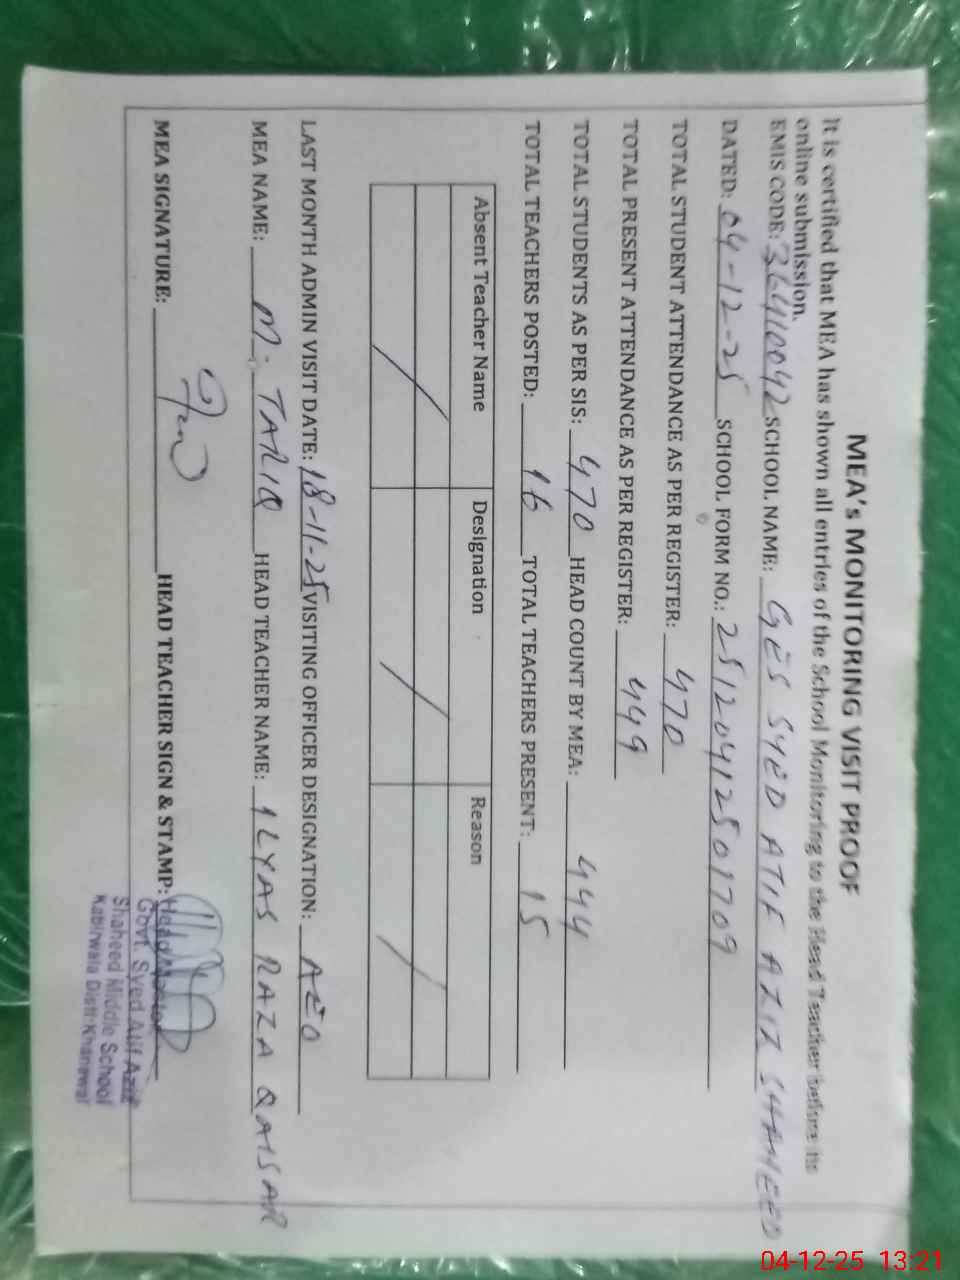 MEA's MONITORING VISIT PROOF
It is certified that MEA has shown all entries of the School Monitoring to the Head Teacher before its
online submission.
EMIS CODE: 36410042 SCHOOL NAME: GES SYED ATIF AZIZ SHAHEED
DATED: 04-12-25 SCHOOL FORM NO.: 25120412501709
TOTAL STUDENT ATTENDANCE AS PER REGISTER: 470
TOTAL PRESENT ATTENDANCE AS PER REGISTER: 449
TOTAL STUDENTS AS PER SIS: 470 HEAD COUNT BY MEA: 444
TOTAL TEACHERS POSTED: 16 TOTAL TEACHERS PRESENT: 15
Absent Teacher Name Designation Reason
LAST MONTH ADMIN VISIT DATE: 18-11-25 VISITING OFFICER DESIGNATION: AEO
MEA NAME: M. TARIQ HEAD TEACHER NAME: ILYAS RAZA QAISAR
MEA SIGNATURE: HEAD TEACHER SIGN & STAMP:
Head Master
Govt. Syed Atif Aziz
Shaheed Middle School
Kabirwala Distt Khanewal
04-12-25 13:21